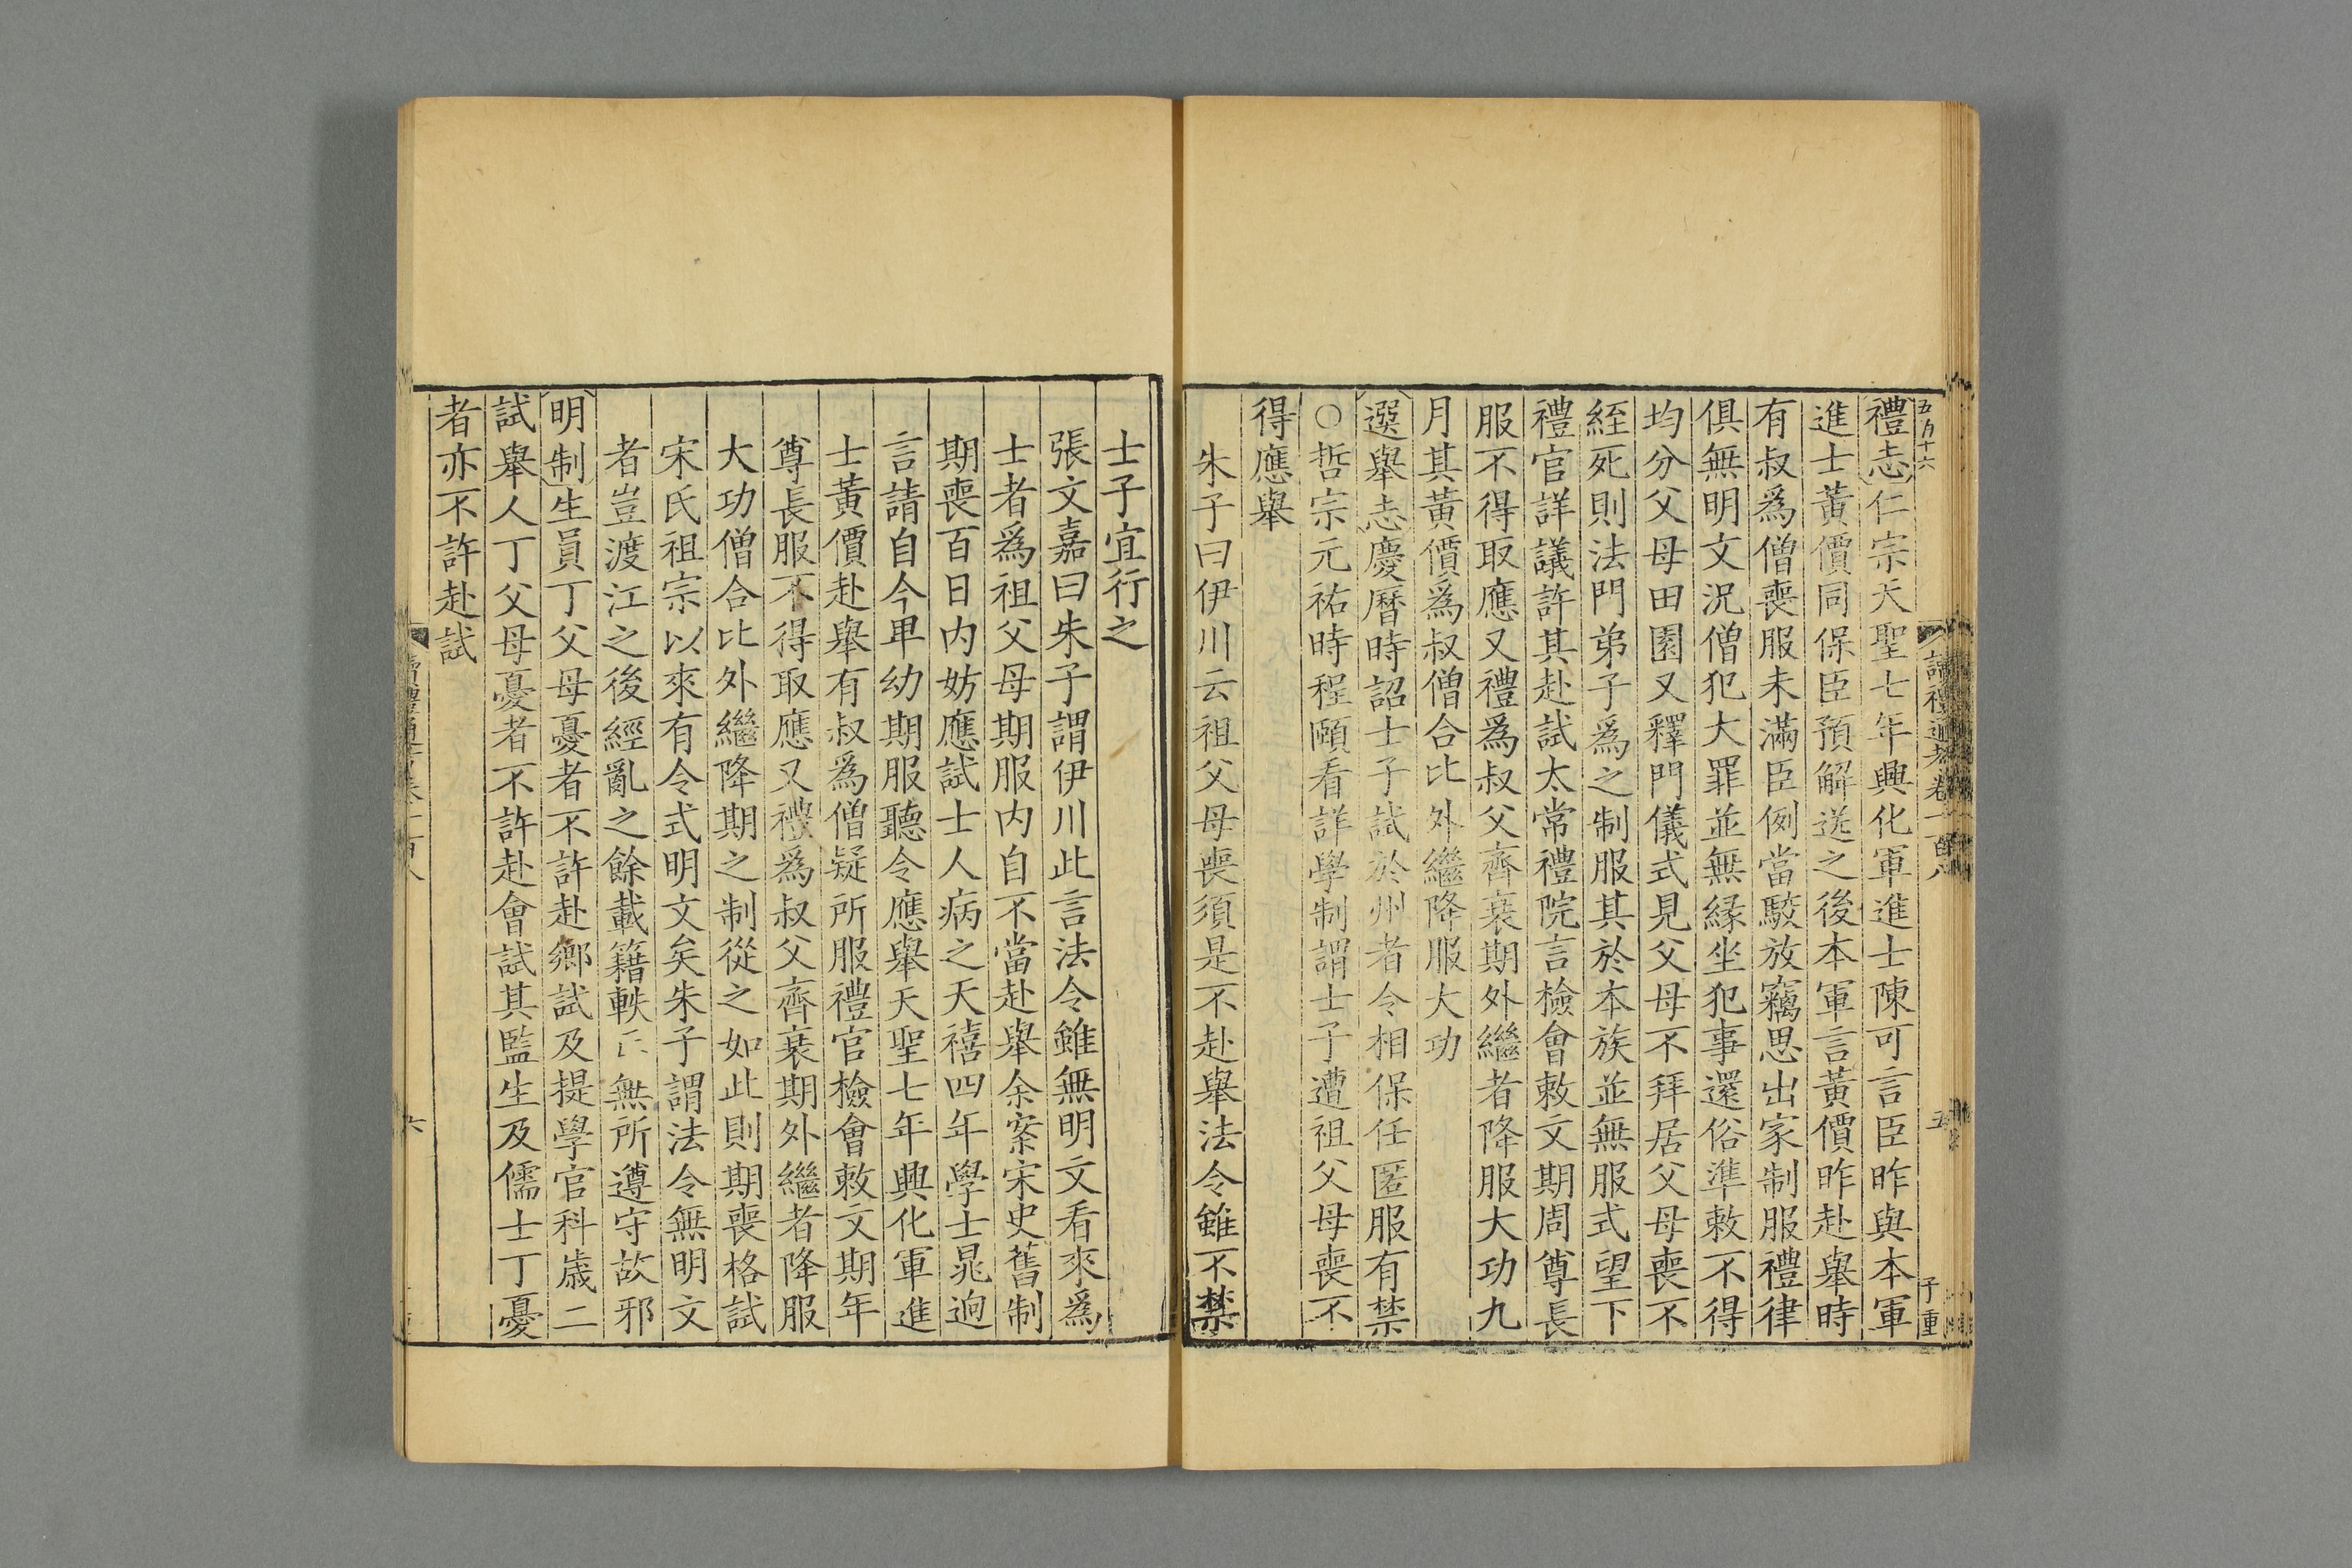 禮志仁宗天聖七年興化軍進士陳可言臣昨與本軍
進士黃價同保臣預解送之後本軍言黃價昨赴舉時
有叔爲僧喪服未滿臣例當駮放竊思出家制服禮律
俱無明文況僧犯大罪並無緣坐犯事還俗準敕不得
均分父母田園又釋門儀式見父母不拜居父母喪不
絰死則法門弟子爲之制服其於本族並無服式望下
禮官詳議許其赴試太常禮院言檢會敕文期周尊長
服不得取應又禮爲叔父齊衰期外繼者降服大功九
月其黃價爲叔僧合比外繼降服大功
選舉志慶曆時詔士子試於州者令相保任匿服有禁
○哲宗元祐時程頤看詳學制謂士子遭祖父母喪不
得應舉
朱子曰伊川云祖父母喪須是不赴舉法令雖不禁
士子宜行之
張文嘉曰朱子謂伊川此言法令雖無明文看來爲
士者爲祖父母期服內自不當赴舉余案宋史舊制
期喪百日內妨應試士人病之天禧四年學士晁迥
言請自今卑幼期服聽令應舉天聖七年興化軍進
士黃價赴舉有叔爲僧疑所服禮官檢會敕文期年
尊長服不得取應又禮爲叔父齊衰期外繼者降服
大功僧合比外繼降期之制從之如此則期喪格試
宋氏祖宗以來有令式明文矣朱子謂法令無明文
者豈渡江之後經亂之餘載籍軼亡無所遵守故邪
明制生員丁父母憂者不許赴鄉試及提學官科歲二
試舉人丁父母憂者不許赴會試其監生及儒士丁憂
者亦不許赴試
五百十六
讀禮通考卷一百八
五
子重
六